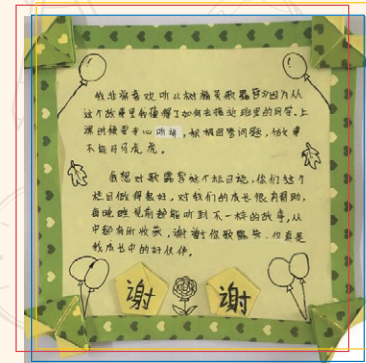 我非常喜欢听
这个故事里我懂得了如何去
课时候要专心听讲,积极回答问题,做事
不能马马虎虎。
我想对歌露营这个栏目说,你们这个
栏目做得真好,对我们的成长很有帮助,
每晚睡觉前都能听到不一样的故事,从
中都有所收获,谢谢你歌露营,你真是
我成长中的好伙伴。
谢 谢